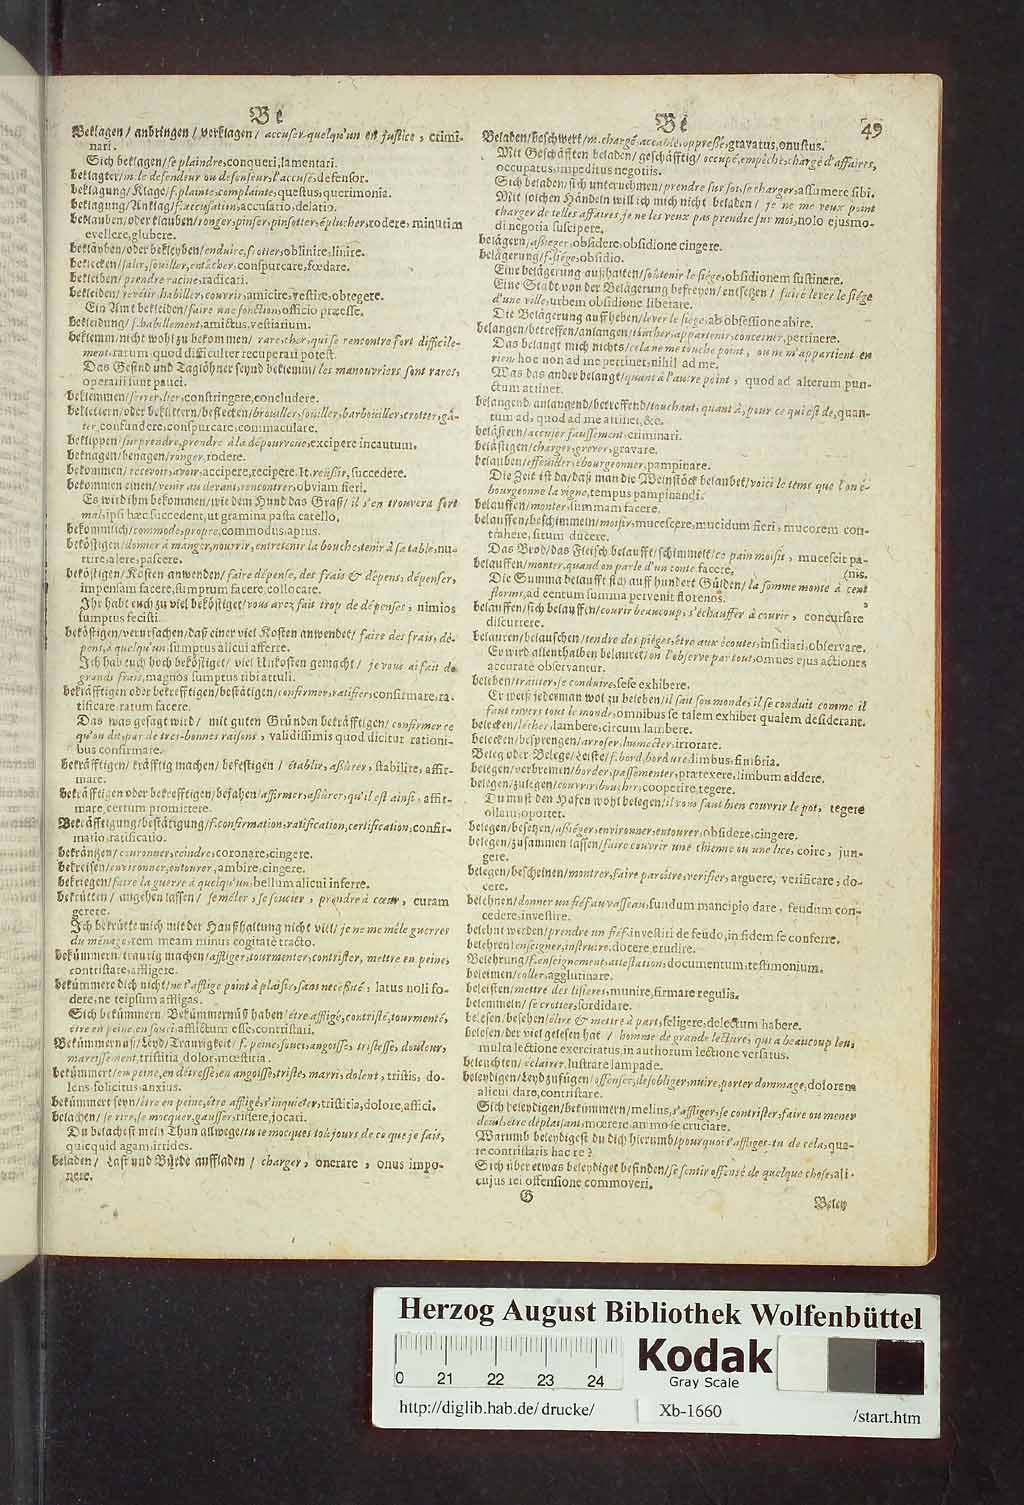 Be
Beklagen/ anbringen/ verklagen/ accuser quelqu'un en justice, crimi-
nari.
Sich beklagen/ se plaindre, conqueri, lamentari.
beklagter/ m. le defendeur ou defenseur, l'accusé, defensor.
beklagung/ Klage/ f. plainte, complainte, questus, querimonia.
beklagung/ Anklag/ f. accusation, accusatio, delatio.
beklauben/ oder klauben/ ronger, pinser, pinsotter, éplucher, rodere, minutim
evellere, glubere.
bekläyben/ oder bekleyben/ enduire, frotter, oblinire, linire.
beklecken/ salir, souiller, entâcher, conspurcare, fœdare.
bekleiben/ prendre racine, radicari.
bekleiden/ revêtir, habiller, couvrir, amicire, vestire, obtegere.
Ein Amt bekleiden/ faire une fonction, officio præesse.
bekleidung/ f. habillement, amictus, vestiarium.
beklemm/ nicht wohl zu bekommen/ rare, cher, qui se rencontre fort difficile-
ment, rarum quod difficulter recuperari potest.
Das Gesind und Taglöhner seynd beklemm/ les manouvriers sont rares,
operarii sunt pauci.
beklemmen/ serrer, lier, constringere, concludere.
beklettern/ oder beklittern/ beflecken/ brouiller, souiller, barbouiller, crotter, gâ-
ter, confundere, conspurcare, commaculare.
beklippen/ surprendre, prendre à la dépourveue, excipere incautum.
beknagen/ benagen/ ronger, rodere.
bekommen/ recevoir, avoir, accipere, recipere. It. reüssir, succedere.
bekommen einen/ venir au devant, rencontrer, obviam fieri.
Es wird ihm bekommen/ wie dem Hund das Graß/ il s'en trouvera fort
mal, ipsi hæc succedent, ut gramina pasta catello.
bekommlich/ commode, propre, commodus, aptus.
beköstigen/ donner à manger, nourrir, entretenir la bouche, tenir à sa table, nu-
trire, alere, pascere.
beköstigen/ Kosten anwenden/ faire dépense, des frais & dépens, dépenser,
impensam facere, sumptum facere, collocare.
Ihr habt euch zu viel beköstiget/ vous avez fait trop de dépenses, nimios
sumptus fecisti.
beköstigen/ verursachen/ daß einer viel Kosten anwendet/ faire des frais, dé-
pens, à quelqu'un, sumptus alicui afferre.
Ich hab euch hoch beköstiget/ viel Unkosten gemacht/ je vous ai fait de
grands frais, magnos sumptus tibi attuli.
bekräfftigen oder bekrefftigen/ bestätigen/ confirmer, ratifier, confirmare, ra-
tificare, ratum facere.
Das was gesagt wird/ mit guten Gründen bekräfftigen/ confirmer ce
qu'on dit, par de tres-bonnes raisons, validissimis quod dicitur rationi-
bus confirmare.
bekräfftigen/ kräfftig machen/ befestigen/ établir, assûrer, stabilire, affir-
mare.
bekräfftigen oder bekrefftigen/ bejahen/ affirmer, assûrer, qu'il est ainsi, affir-
mare, certum promittere.
Bekräfftigung/ bestätigung/ f. confirmation, ratification, certification, confir-
matio, ratificatio.
bekräntzen/ couronner, ceindre, coronare, cingere.
bekreisen/ environner, entourer, ambire, cingere.
bekriegen/ faire la guerre à quelqu'un, bellum alicui inferre.
bekütten/ angehen lassen/ se mêler, se soucier, prendre à cœur, curam
gerere.
Ich bekütte mich mit der Haußhaltung nicht viel/ je ne me mêle guerres
du ménage, rem meam minus cogitatè tracto.
bekümmern/ traurig machen/ affliger, tourmenter, contrister, mettre en peine,
contristare, affligere.
bekümmere dich nicht/ ne t'afflige point à plaisir, sans necessité, latus noli fo-
dere, ne teipsum affligas.
Sich bekümmern/ Bekümmernüß haben/ être affligé, contristé, tourmenté,
être en peine, en souci, afflictum esse, contristari.
Bekümmernüß/ Leyd/ Traurigkeit/ f. peine, souci, angoisse, tristesse, douleur,
marrissement, tristitia, dolor, mœstitia.
bekümmert/ en peine, en détresse, en angoisse, triste, marri, dolent, tristis, do-
lens, solicitus, anxius.
bekümmert seyn/ être en peine, être affligé, s'inquieter, tristitia, dolore, affici.
belachen/ se rire, se mocquer, gausser, ridere, jocari.
Du belachest mein Thun allwege/ tu te mocques toûjours de ce que je fais,
quicquid agam, irrides.
beladen/ Last und Bürde auffladen/ charger, onerare, onus impo-
nere.
Be
49
Beladen/ beschwert/ m. chargé, accablé, oppressé, gravatus, onustus.
Mit Geschäfften beladen/ geschäfftig/ occupé, empêché, chargé d'affaires,
occupatus, impeditus negotiis.
Sich beladen/ sich unternehmen/ prendre sur soi, se charger, assumere sibi.
Mit solchen Händeln will ich mich nicht beladen/ je ne me veux point
charger de telles affaires, je ne les veux pas prendre sur moi, nolo ejusmo-
di negotia suscipere.
belägern/ assieger, obsidere, obsidione cingere.
belägerung/ f. siege, obsidio.
Eine belägerung außhalten/ soûtenir le siége, obsidionem sustinere.
Eine Stadt von der Belägerung befreyen/ entsetzen/ faire lever le siége
d'une ville, urbem obsidione liberare.
Die Belägerung auffheben/ lever le siege, ab obsessione abire.
belangen/ betreffen/ anlangen/ toucher, appartenir, concerner, pertinere.
Das belangt mich nichts/ cela ne me touche point, ou ne m'appartient en
rien, hoc non ad me pertinet, nihil ad me.
Was das ander belangt/ quant à l'autre point, quod ad alterum pun-
ctum attinet.
belangend/ anlangend/ betreffend/ touchant, quant à, pour ce qui est de, quan-
tum ad, quod ad me attinet, &c.
belästern/ accuser faussement, criminari.
belästigen/ charger, grever, gravare.
belauben/ effeuiller, ébourgeonner, pampinare.
Die Zeit ist da/ daß man die Weinstöck belaubet/ voici le têms que l'on é-
bourgeonne la vigne, tempus pampinandi.
belauffen/ monter, summam facere.
belauffen/ beschimmeln/ moisir, mucescere, mucidum fieri, mucorem con-
trahere, situm ducere.
Das Brod/ das Fleisch belaufft/ schimmelt/ ce pain moisit, mucescit pa-
belauffen/ monter, quand on parle d'un conte, facere. (nis.
Die Summa belaufft sich auff hundert Gülden/ la somme monte à cent
florins, ad centum summa pervenit florenos.
belauffen/ sich belauffen/ courir beaucoup, s'échauffer à courir, concursare
discurrere.
belauren/ belauschen/ tendre des piéges, être aux écoutes, insidiari, observare.
Er wird allenthalben belauret/ on l'observe par tout, omnes ejus actiones
accuratè observantur.
beleben/ traiter, se conduire, sese exhibere.
Er weiß jederman wol zu beleben/ il sait son monde, il se conduit comme il
faut envers tout le monde, omnibus se talem exhibet qualem desiderant.
belecken/ lécher, lambere, circum lambere.
belecken/ besprengen/ arroser, humecter, irrorare.
Beleg oder Belege/ Leiste/ f. bord, bordure, limbus, fimbria.
belegen/ verbremen/ border, passementer, prætexere, limbum addere.
belegen/ zulegen/ couvrir, boucher, cooperire, tegere.
Du must den Hafen wohl belegen/ il vous faut bien couvrir le pot, tegere
ollam, oportet.
belegen/ besetzen/ assiéger, environner, entourer, obsidere, cingere.
belegen/ zusammen lassen/ faire couvrir une chienne ou une lice, coire, jun-
gere.
belegen/ bescheinen/ montrer, faire paroître, verifier, arguere, verificare, do-
cere.
belehnen/ donner un fief au vasseau, fundum mancipio dare, feudum con-
cedere, investire.
belehnt werden/ prendre un fief, investiri de feudo, in fidem se conferre.
belehren/ enseigner, instruire, docere, erudire.
Belehrung/ f. enseignement, attestation, documentum, testimonium.
beleimen/ coller, agglutinare.
beleisten/ mettre des lisieres, munire, firmare regulis.
belemmeln/ se crotter, sordidare.
belesen/ besehen/ élire & mettre à part, seligere, delectum habere.
belesen/ der viel gelesen hat/ homme de grande lecture, qui a beaucoup leu,
multa lectione exercitatus, in authorum lectione versatus.
beleuchten/ éclairer, lustrare lampade.
beleydigen/ Leyd zufügen/ offenser, desobliger, nuire, porter dommage, dolorem
alicui dare, contristare.
Sich beleydigen/ bekümmern/ melius, s'affliger, se contrister, faire ou mener
deuil, être déplaisant, mœrere, animo se cruciare.
Warumb beleydigest du dich hierumb/ pourquoi t'affliges-tu de cela, qua-
re contristaris hac re?
Sich über etwas beleydiget befinden/ se sentir offensé de quelque chose, ali-
cujus rei offensione commoveri.
G
Beley
Herzog August Bibliothek Wolfenbüttel
0 21 22 23 24
Kodak
Gray Scale
http://diglib.hab.de/drucke/ Xb-1660 /start.htm